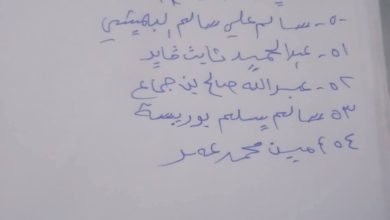 ٥٠- سالم علي سالم البهيشي
٥١- عبدالحميد ثابت فايد
٥٢- عبدالله صالح بن جماع
٥٣ سالم سليم بوريسة
٥٤ امين محمد عمر